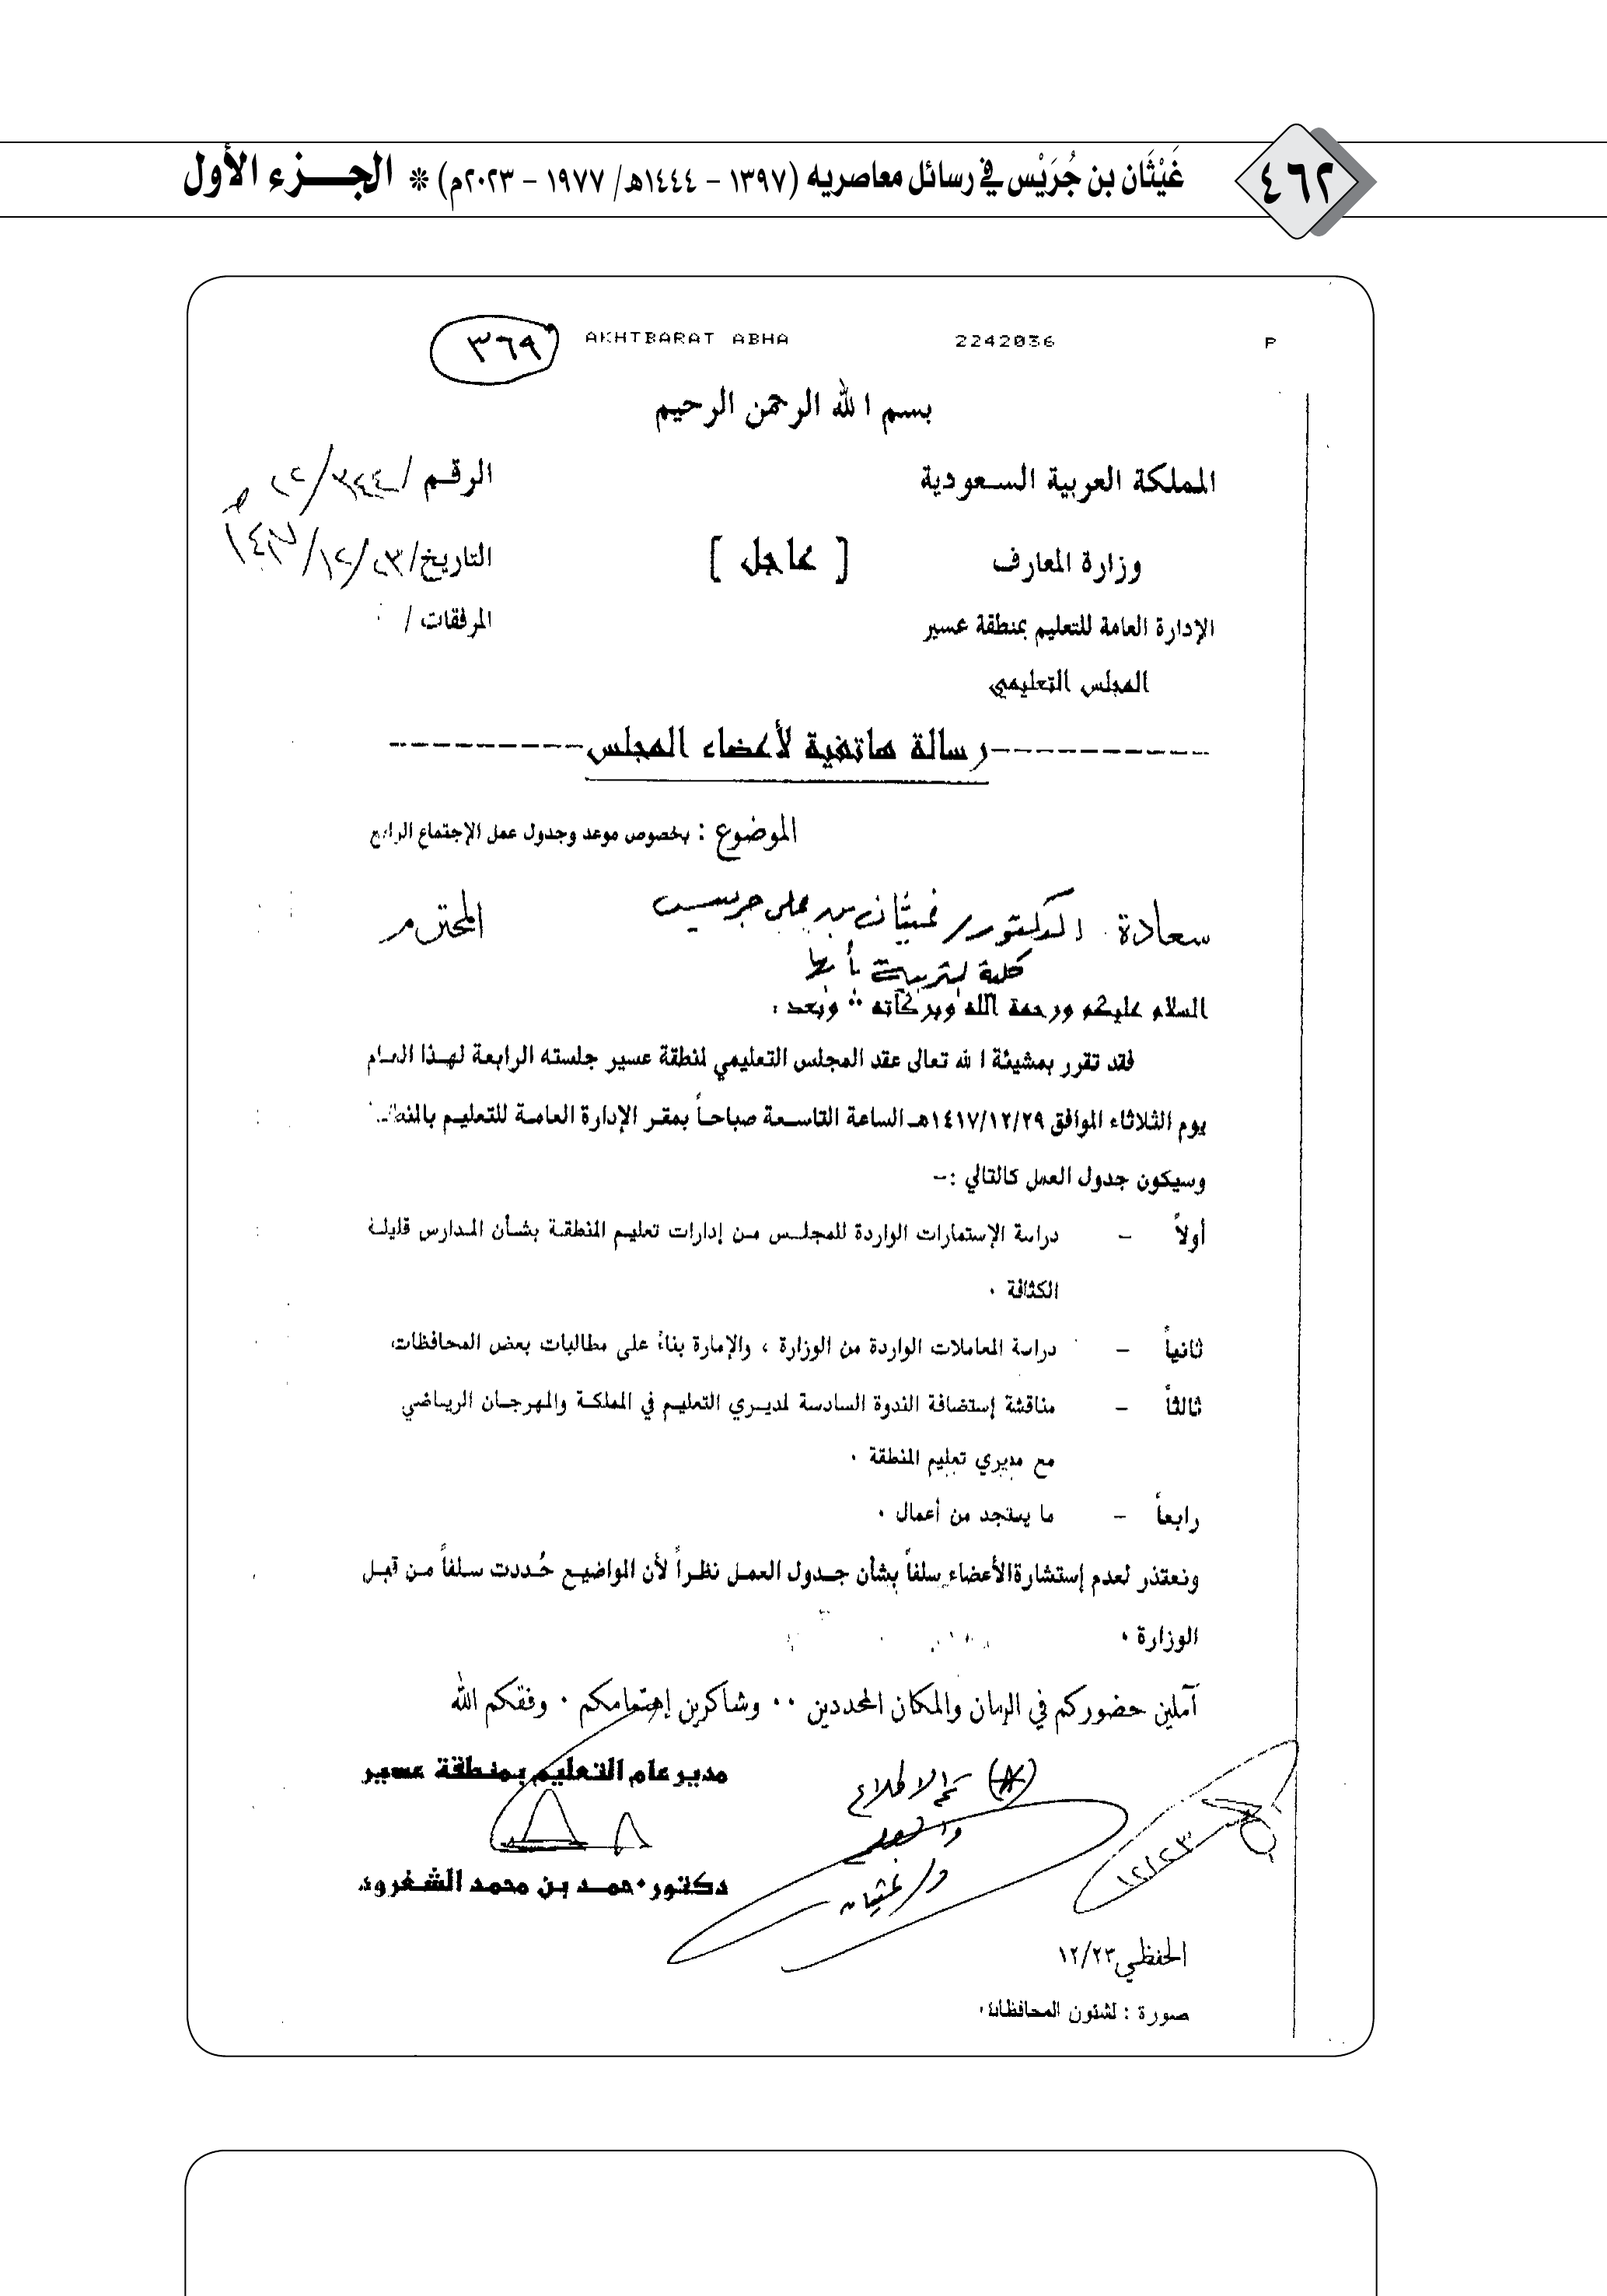 ٤٦٢
غَيْثَان بن جُرَيْس في رسائل معاصريه (١٣٩٧ - ١٤٤٤هـ/ ١٩٧٧ - ٢٠٢٣م) * الجـــزء الأول
P 2242036 AKHTBARAT ABHA ٣٦٩
بسم الله الرحمن الرحيم
المملكة العربية السعودية
وزارة المعارف
الإدارة العامة للتعليم بمنطقة عسير
المجلس التعليمي
[ عاجل ]
الرقم / ٣٤٤/١٢
التاريخ/ ٢٣/١٢/١٤١٧هـ
المرفقات /
-----------رسالة هاتفية لأعضاء المجلس----------
الموضوع : بخصوص موعد وجدول عمل الإجتماع الرابع
سعادة الدكتور/ غيثان بن علي جريس المحترم
كلية التربية بأبها
السلام عليكم ورحمة الله وبركاته ،، وبعد :
فقد تقرر بمشيئة الله تعالى عقد المجلس التعليمي لمنطقة عسير جلسته الرابعة لهـذا العـام
يوم الثلاثاء الموافق ١٤١٧/١٢/٢٩هـ الساعة التاسـعة صباحـاً بمقـر الإدارة العامـة للتعليـم بالمنطقـة
وسيكون جدول العمل كالتالي :-
أولاً - دراسة الإستمارات الواردة للمجلــس مـن إدارات تعليـم المنطقـة بشـأن المـدارس قليلـة
الكثافة ٠
ثانياً - دراسة المعاملات الواردة من الوزارة ، والإمارة بناءً على مطالبات بعض المحافظات
ثالثاً - مناقشة إستضافة الندوة السادسة لمديـري التعليـم في المملكـة والمهرجـان الريـاضي
مع مديري تعليم المنطقة ٠
رابعاً - ما يستجد من أعمال ٠
ونعتذر لعدم إستشارة الأعضاء سلفاً بشأن جـدول العمـل نظـراً لأن المواضيـع حُـددت سـلفاً مـن قبـل
الوزارة ٠
آملين حضوركم في الزمان والمكان المحددين ٠٠ وشاكرين إهتمامكم ٠ وفقكم الله
مدير عام التعليم بمنطقة عسير
دكتور ٠حمـد بن محمد الشغرود
(*) تم الاطلاع
د/ غيثان
١٢/٢٣
الحفظي ١٢/٢٣
صورة : لشئون المحافظات٠